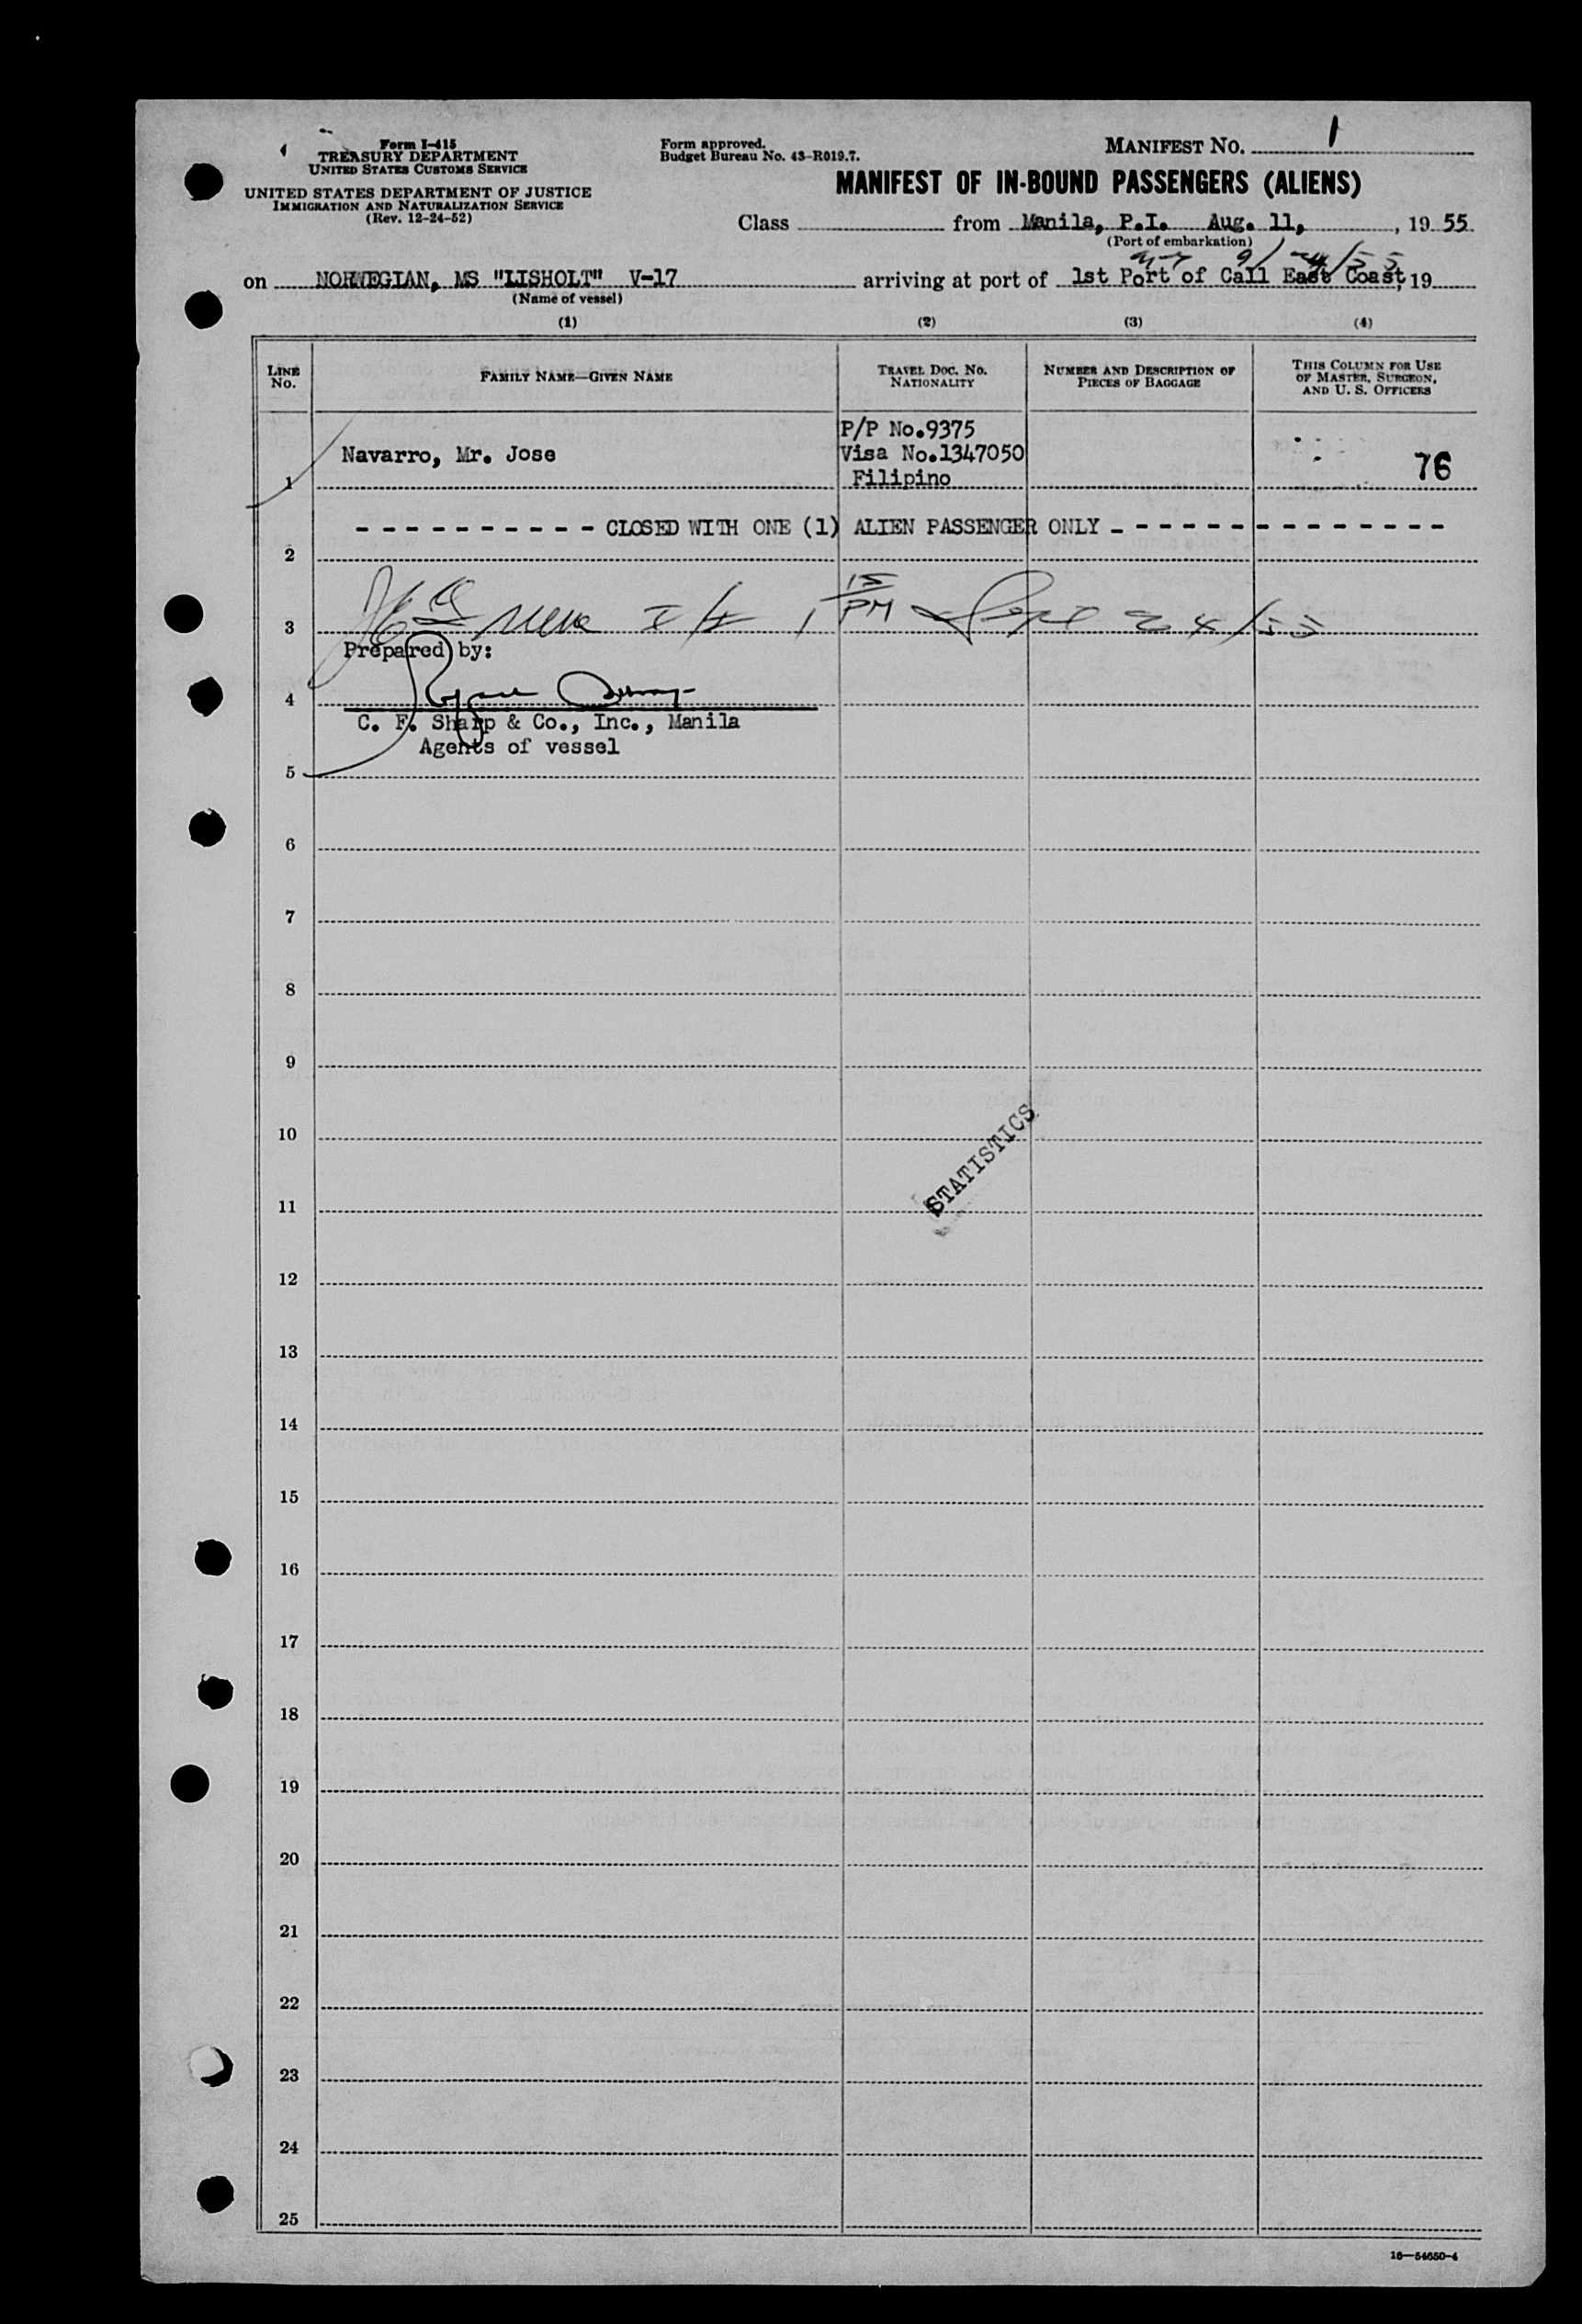 Form I-415
TREASURY DEPARTMENT
UNITED STATES CUSTOMS SERVICE
UNITED STATES DEPARTMENT OF JUSTICE
IMMIGRATION AND NATURALIZATION SERVICE
(Rev. 12-24-52)
Form approved.
Budget Bureau No. 43-R019.7.
MANIFEST NO. 1
MANIFEST OF IN-BOUND PASSENGERS (ALIENS)
Class from Manila, P.I. Aug. 11, , 19 55
(Port of embarkation)
9/24/55
on NORWEGIAN, MS "LISHOLT" V-17 arriving at port of 1st Port of Call East Coast, 19
(Name of vessel)
(1) (2) (3) (4)
LINE NO. FAMILY NAME—GIVEN NAME TRAVEL DOC. NO. NATIONALITY NUMBER AND DESCRIPTION OF PIECES OF BAGGAGE THIS COLUMN FOR USE OF MASTER, SURGEON, AND U. S. OFFICERS
P/P No.9375
1 Navarro, Mr. Jose Visa No.1347050 76
Filipino
- - - - - - - - - - - CLOSED WITH ONE (1) ALIEN PASSENGER ONLY - - - - - - - - - - - - - -
2
3 1 15 PM Sept 24/55
Prepared by:
4
C. F. Sharp & Co., Inc., Manila
Agents of vessel
5
6
7
8
9
10
STATISTICS
11
12
13
14
15
16
17
18
19
20
21
22
23
24
25
16—54650-4